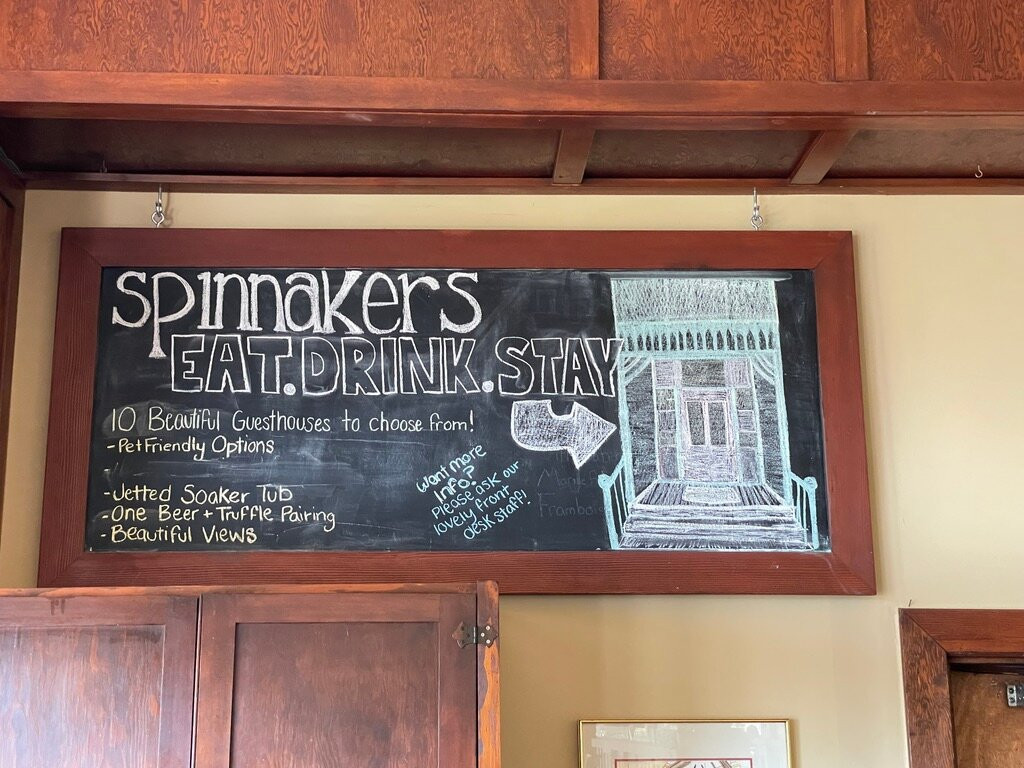 spinnakers
EAT.DRINK.STAY
10 Beautiful Guesthouses to choose from!
-Pet Friendly Options
-Jetted Soaker Tub
-One Beer + Truffle Pairing
-Beautiful Views
Want more
Info?
Please ask our
lovely front
desk staff!